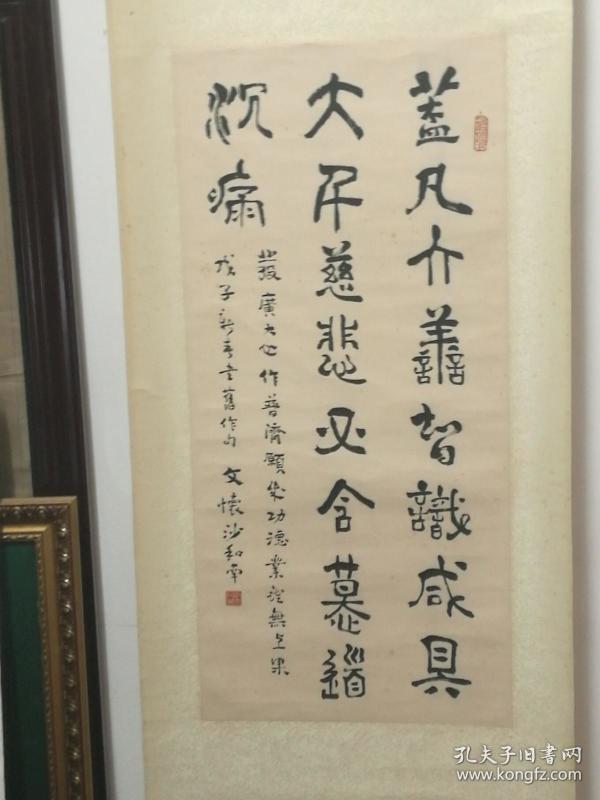 蓋凡亣譱智識咸具
大慈悲必含慕道
沉痛
發廣大心作普濟願成功德業證無上果
戊子新春書舊作句 文懷沙和南
孔夫子旧书网
www.kongfz.com